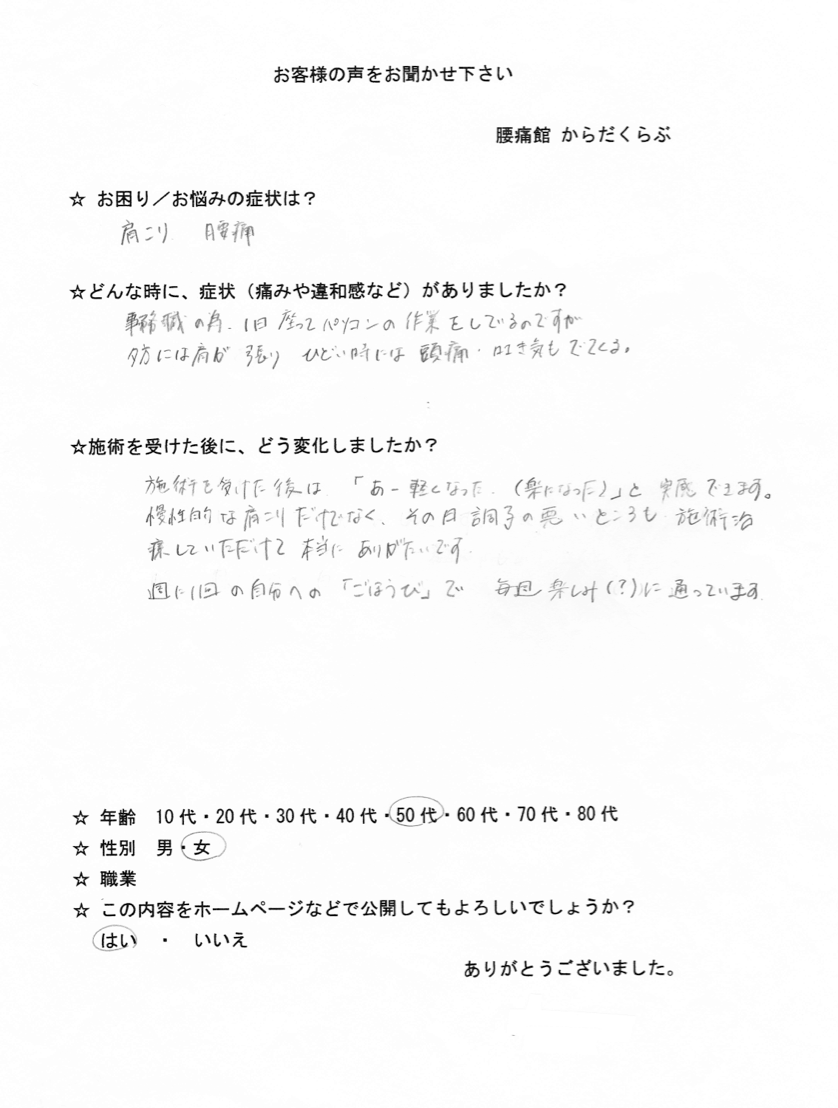 お客様の声をお聞かせ下さい
腰痛館 からだくらぶ
☆ お困り／お悩みの症状は？
肩こり 腰痛
☆どんな時に、症状（痛みや違和感など）がありましたか？
事務職の為、1日座ってパソコンの作業をしているのですが
夕方には肩が張り ひどい時には頭痛・吐き気もでてくる。
☆施術を受けた後に、どう変化しましたか？
施術を受けた後は「あー軽くなった、（楽になった）」と実感できます。
慢性的な肩こりだけでなく、その日調子の悪いところも施術治
療していただけて本当にありがたいです。
週に1回の自分への「ごほうび」で 毎週楽しみ（？）に通っています。
☆ 年齢 10代・20代・30代・40代・50代・60代・70代・80代
☆ 性別 男・女
☆ 職業
☆ この内容をホームページなどで公開してもよろしいでしょうか？
はい ・ いいえ
ありがとうございました。